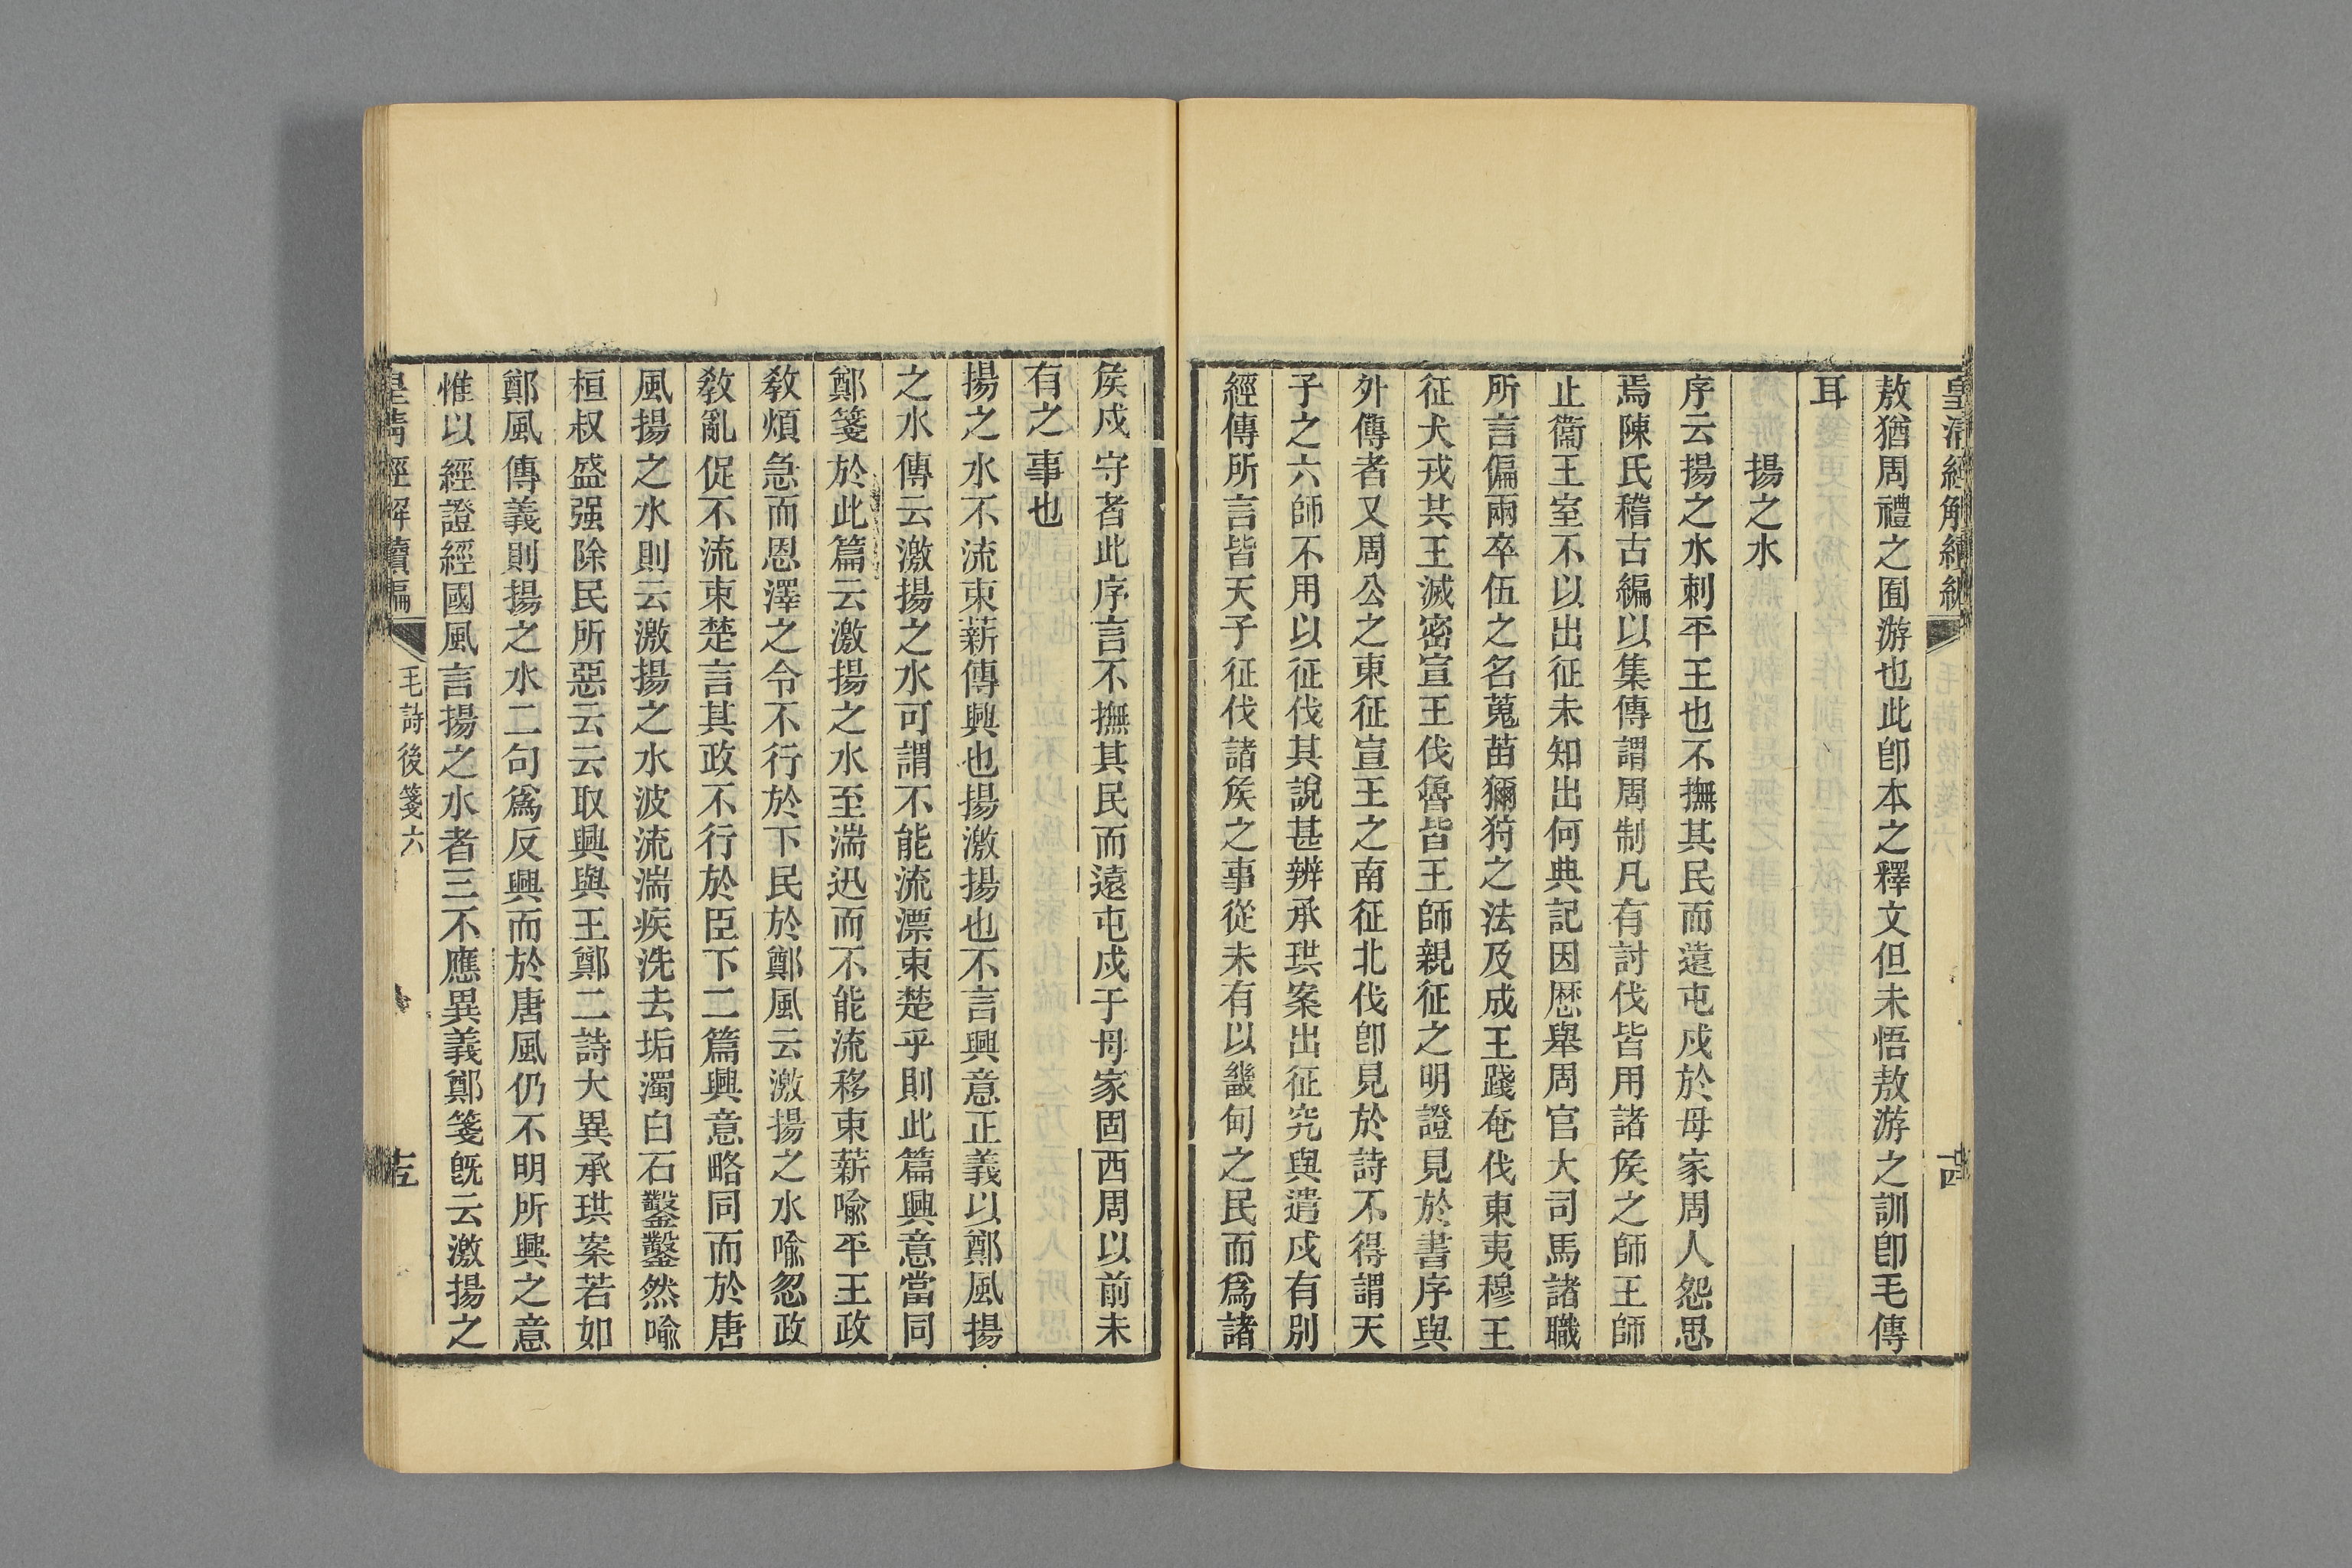 皇清經解續編
敖猶周禮之囿游也此卽本之釋文但未悟敖游之訓卽毛傳
耳
揚之水
序云揚之水刺平王也不撫其民而遠屯戍於母家周人怨思
焉陳氏稽古編以集傳謂周制凡有討伐皆用諸矦之師王師
止衞王室不以出征未知出何典記因厯舉周官大司馬諸職
所言偏兩卒伍之名蒐苗獮狩之法及成王踐奄伐東夷穆王
征犬戎共王滅密宣王伐魯皆王師親征之明證見於書序與
外傳者又周公之東征宣王之南征北伐卽見於詩不得謂天
子之六師不用以征伐其說甚辨承珙案出征究與遣戍有別
經傳所言皆天子征伐諸矦之事從未有以畿甸之民而爲諸
矦戍守者此序言不撫其民而遠屯戍于母家固西周以前未
有之事也
揚之水不流束薪傳興也揚激揚也不言興意正義以鄭風揚
之水傳云激揚之水可謂不能流漂束楚乎則此篇興意當同
鄭箋於此篇云激揚之水至湍迅而不能流移束薪喩平王政
敎煩急而恩澤之令不行於下民於鄭風云激揚之水喩忽政
敎亂促不流束楚言其政不行於臣下二篇興意略同而於唐
風揚之水則云激揚之水波流湍疾洗去垢濁白石鑿鑿然喩
桓叔盛强除民所惡云云取興與王鄭二詩大異承珙案若如
鄭風傳義則揚之水二句爲反興而於唐風仍不明所興之意
惟以經證經國風言揚之水者三不應異義鄭箋旣云激揚之
皇清經解續編
毛詩後箋六